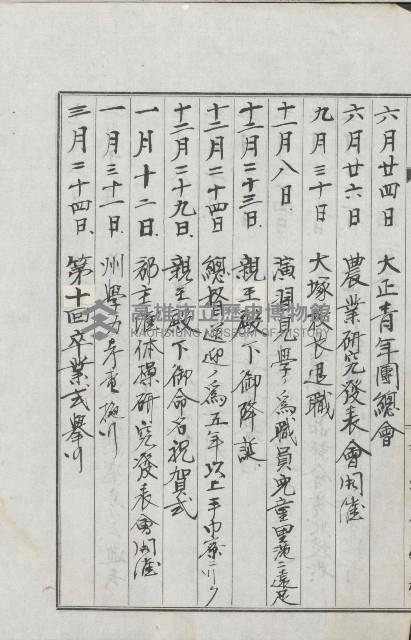 六月廿四日 大正青年團總會
六月廿六日 農業研究發表會開催
九月三十日 大塚校長退職
十一月八日 演習見學ノ為職員兒童里港ニ遠足
十二月二十三日 親王殿下御降誕
十二月二十四日 總督送迎ノ為五年以上
十二月二十九日 親王殿下御命名祝賀式
一月十二日 郡主催体操研究發表會開催
一月三十一日 州學
三月二十四日 第十回卒業式擧行
高雄市立歷史博物館
KAOHSIUNG MUSEUM OF HISTORY